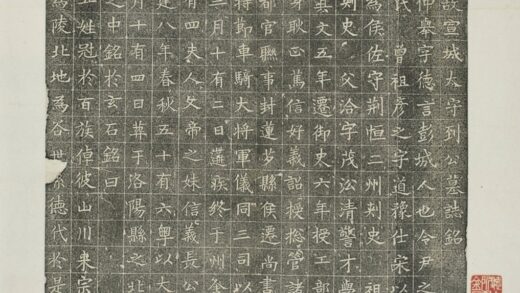 故宣城太守到公墓誌銘
仲舉字德言彭城人也令尹之
氏曾祖彥之字道豫仕宋以
為侯佐守荊恒二州刺史祖
刺史父洽字茂㳂清警才學
文五年遷御史六年授工部
身耿正篤信好義詔授摠管諸
都官聯事封蓮芍縣侯遷尚書
將勛車騎大將軍儀同三司以
三月十有二日遘疾終于州
有四夫人文帝之妹信義長公
是八年春秋五十有六粵以大
月十有四日葬于洛陽縣之北
之中銘於玄石銘曰
姓冠於百族倬彼山川來宗
陵北地為谷世德代於